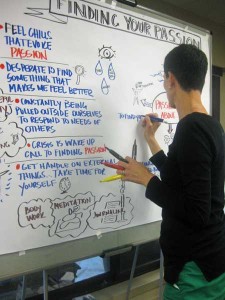 FINDING YOUR PASSION
• FEEL CHILLS
THAT EVOKE
PASSION
• DESPERATE TO FIND
SOMETHING THAT
MAKES ME FEEL BETTER
• CONSTANTLY BEING
PULLED OUTSIDE OURSELVES
TO RESPOND TO NEEDS OF
OTHERS
• CRISIS IS WAKE UP
CALL TO FINDING PASSION
• GET HANDLE ON EXTERNAL
THINGS... TAKE TIME FOR
YOURSELF
BODY
WORK
MEDITATION
JOURNALING
PASSION